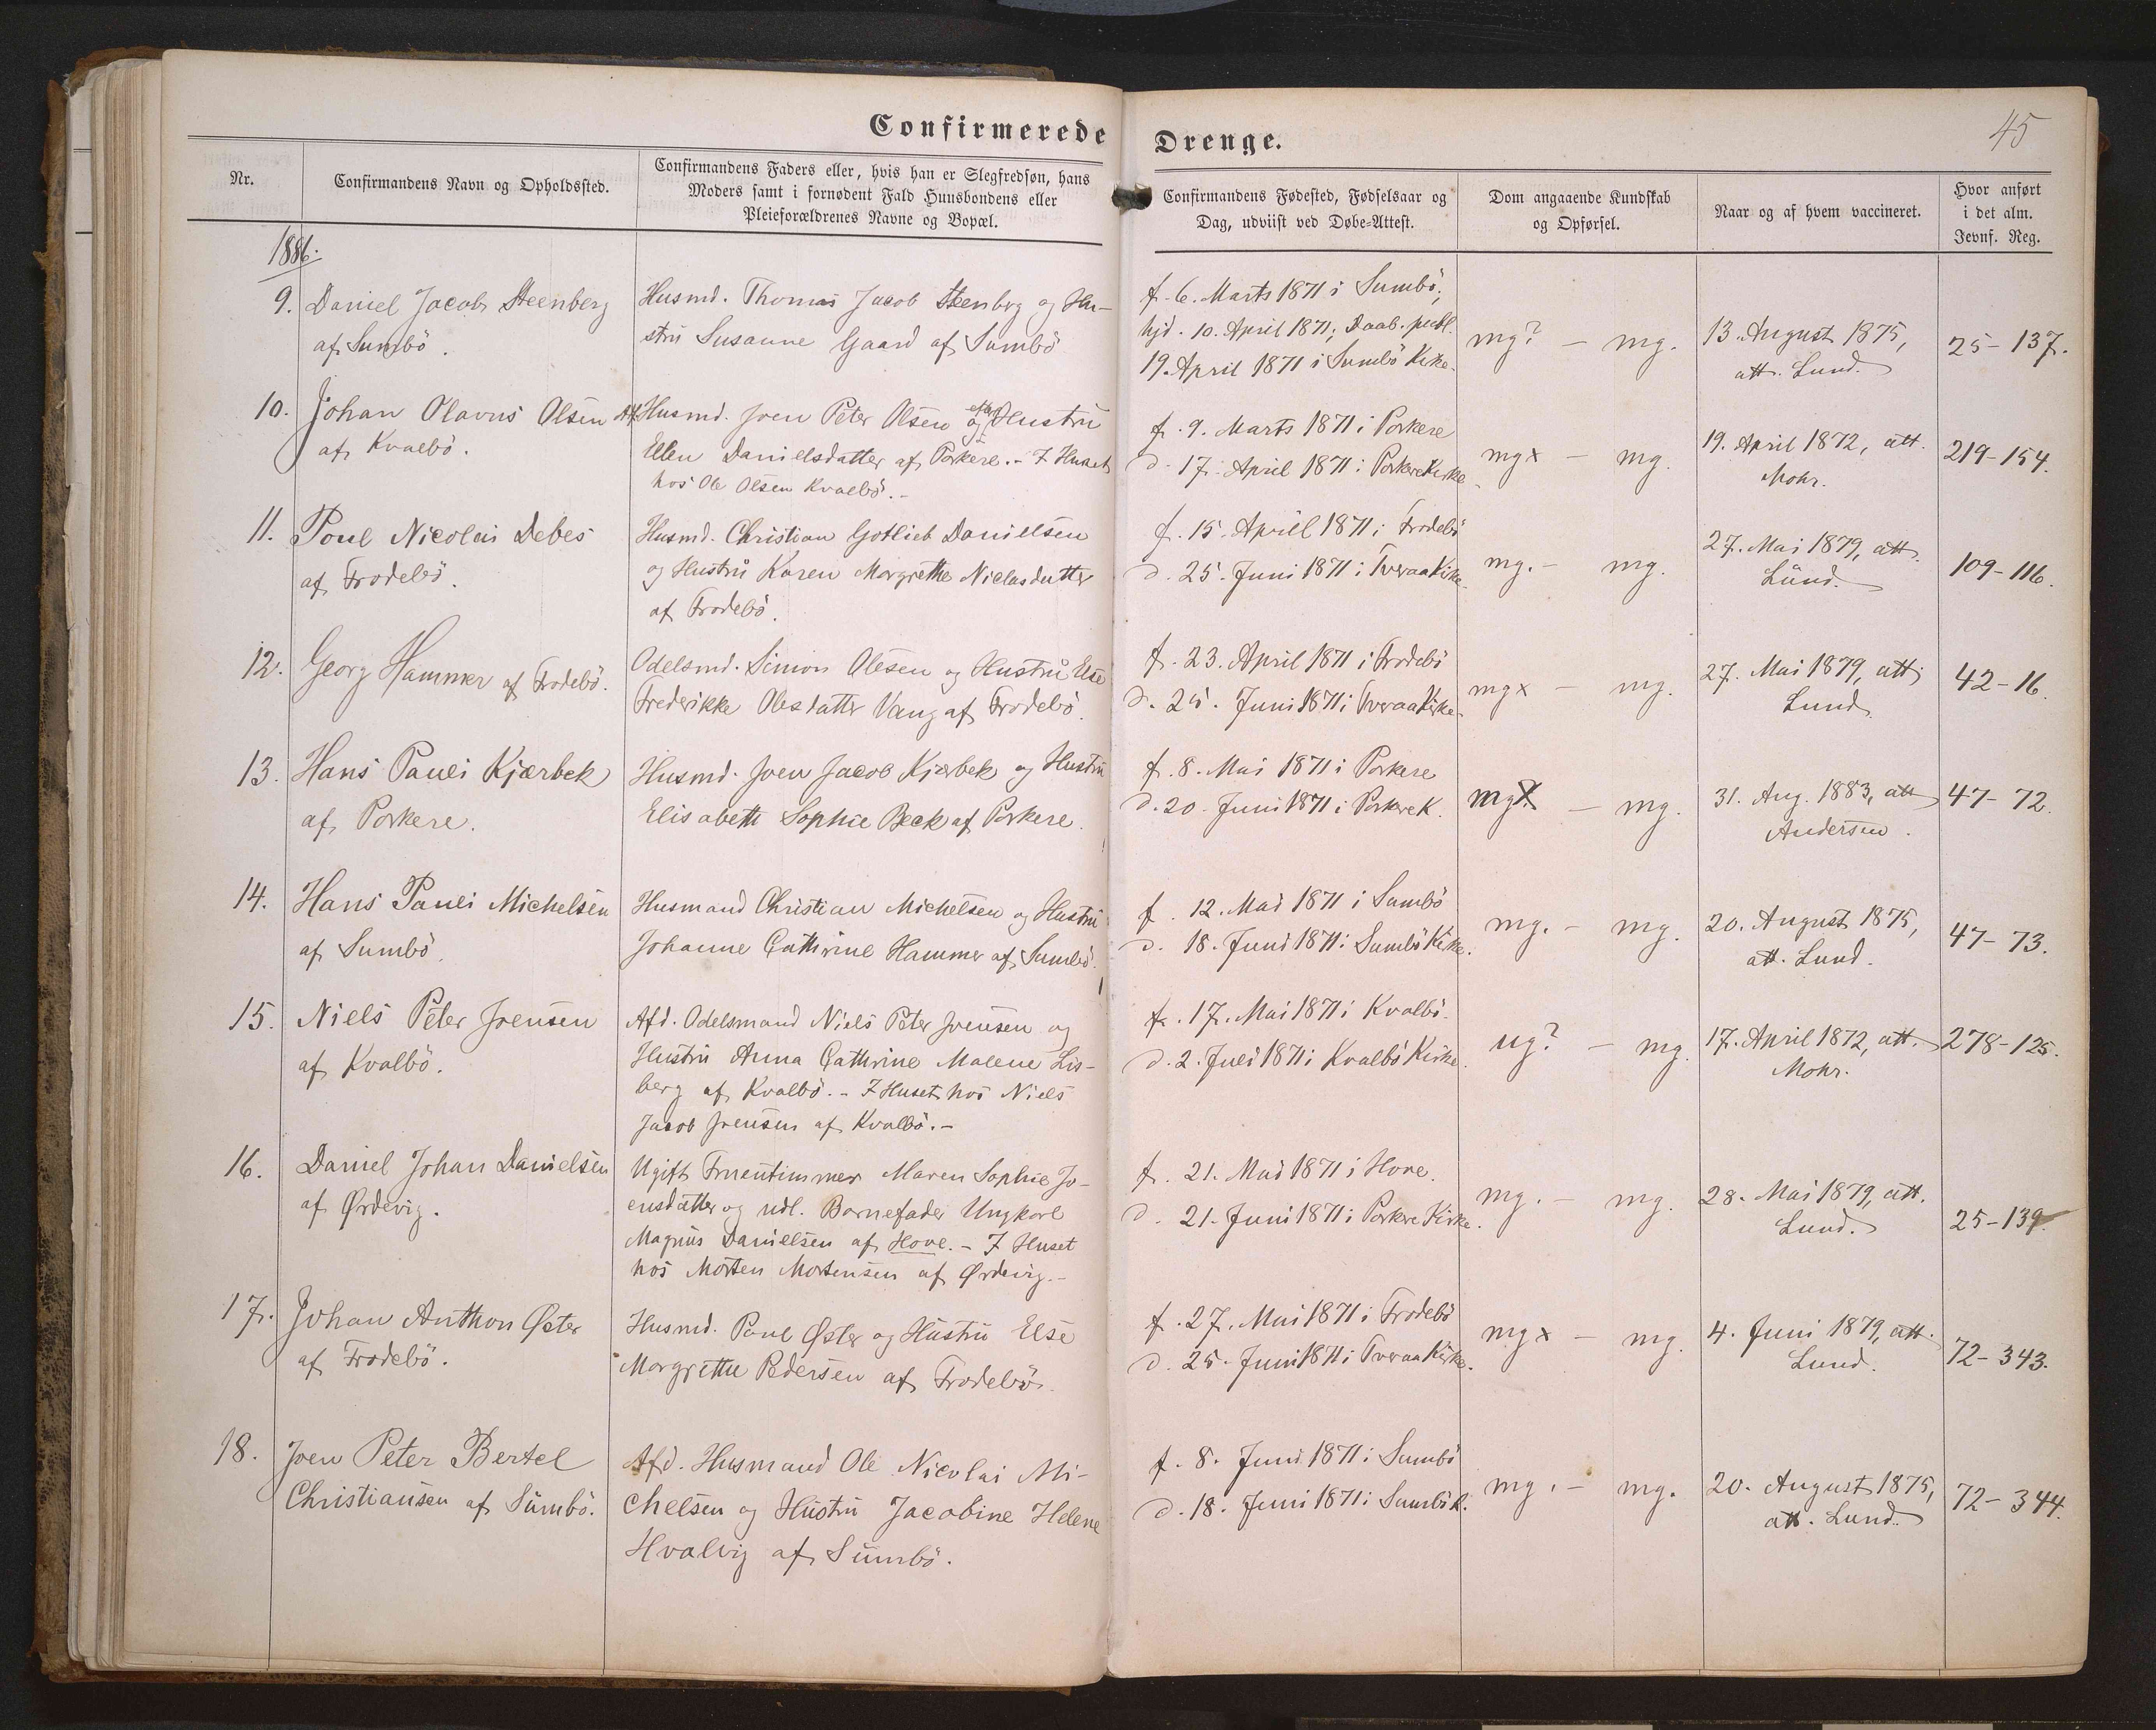 Confirmerede Drenge.
45
Nr.
Confirmandens Navn og Opholdssted.
Confirmandens Faders eller, hvis han er Slegfredsøn, hans
Moders samt i fornødent Fald Huusbondens eller
Pleieforældrenes Navne og Bopæl.
Confirmandens Fødested, Fødselsaar og
Dag, udviist ved Døbe-Attest.
Dom angaaende Kundskab
og Opførsel.
Naar og af hvem vaccineret.
Hvor anført
i det alm.
Jevnf. Reg.
1886.
9.
Daniel Jacob Steenberg
af Sumbö.
Husmd. Thomas Jacob Steenberg og Hu-
stru Susanne Gaard af Sumbö
f. 6. Marts 1871 i Sumbö,
hjd. 10. April 1871; Daab. publ.
19. April 1871 i Sumbö Kirke.
mg? – mg.
13. August 1875,
att. Lund.
25-137.
10.
Johan Olavus Olsen
af Kvalbö.
Afd. Husmd. Joen Peter Olsen og Hustru
Ellen Danielsdatter af Porkere. - I Huset
hos Ole Olsen Kvalbö. -
f. 9. Marts 1871 i Porkere
d. 17. April 1871 i Porkere Kirke.
mgx – mg.
19. April 1872, att.
Mohr.
219-154.
11.
Poul Nicolai Debes
af Frodebö.
Husmd. Christian Gotlieb Danielsen
og Hustru Karen Margrethe Niclasdatter
af Frodebö.
f. 15. April 1871 i Frodebö
d. 25. Juni 1871 i Tveraa Kirke.
mg. – mg.
27. Mai 1879, att.
Lund.
109-116.
12.
Georg Hammer af Frodebö.
Odelsmd. Simon Olesen og Hustru Else
Frederikke Olesdatter Vang af Frodebö.
f. 23. April 1871 i Frodebö
d. 25. Juni 1871 i Tveraa Kirke.
mgx – mg.
27. Mai 1879, att.
Lund.
42-16.
13.
Hans Pauli Kjærbek
af Porkere.
Husmd. Joen Jacob Kjærbek og Hustru
Elisabeth Sophie Beck af Porkere.
f. 8. Mai 1871 i Porkere
d. 20. Juni 1871 i Porkere K.
mgx – mg.
31. Aug. 1883, att.
Andersen.
47-72.
14.
Hans Pauli Michelsen
af Sumbö.
Husmand Christian Michelsen og Hustru
Johanne Cathrine Hammer af Sumbö.
f. 12. Mai 1871 i Sumbö
d. 18. Juni 1871 i Sumbö Kirke.
mg. – mg.
20. August 1875,
att. Lund.
47-73.
15.
Niels Peter Joensen
af Kvalbö.
Afd. Odelsmand Niels Peter Joensen og
Hustru Anna Cathrine Malene Lis-
berg af Kvalbö. - I Huset hos Niels
Jacob Joensen af Kvalbö. -
f. 17. Mai 1871 i Kvalbö.
d. 2. Juli 1871 i Kvalbö Kirke.
ug? – mg.
17. April 1872, att.
Mohr.
278-125.
16.
Daniel Johan Danielsen
af Ørdevig.
Ugift Fruentimmer Maren Sophie Jo-
ensdatter og udl. Barnefader Ungkarl
Magnus Danielsen af Hove. - I Huset
hos Morten Mortensen af Ørdevig. -
f. 21. Mai 1871 i Hove.
d. 21. Juni 1871 i Porkere Kirke.
mg. – mg.
28. Mai 1879, att.
Lund.
25-139.
17.
Johan Anthon Øster
af Frodebö.
Husmd. Poul Øster og Hustru Else
Margrethe Pedersen af Frodebö.
f. 27. Mai 1871 i Frodebö
d. 25. Juni 1871 i Tveraa Kirke.
mgx – mg.
4. Juni 1879, att.
Lund.
72-343.
18.
Joen Peter Bertel
Christiansen af Sumbö.
Afd. Husmand Ole Nicolai Mi-
chelsen og Hustru Jacobine Helene
Hvalvig af Sumbö.
f. 8. Juni 1871 i Sumbö
d. 18. Juni 1871 i Sumbö K.
mg. – mg.
20. August 1875,
att. Lund.
72-344.